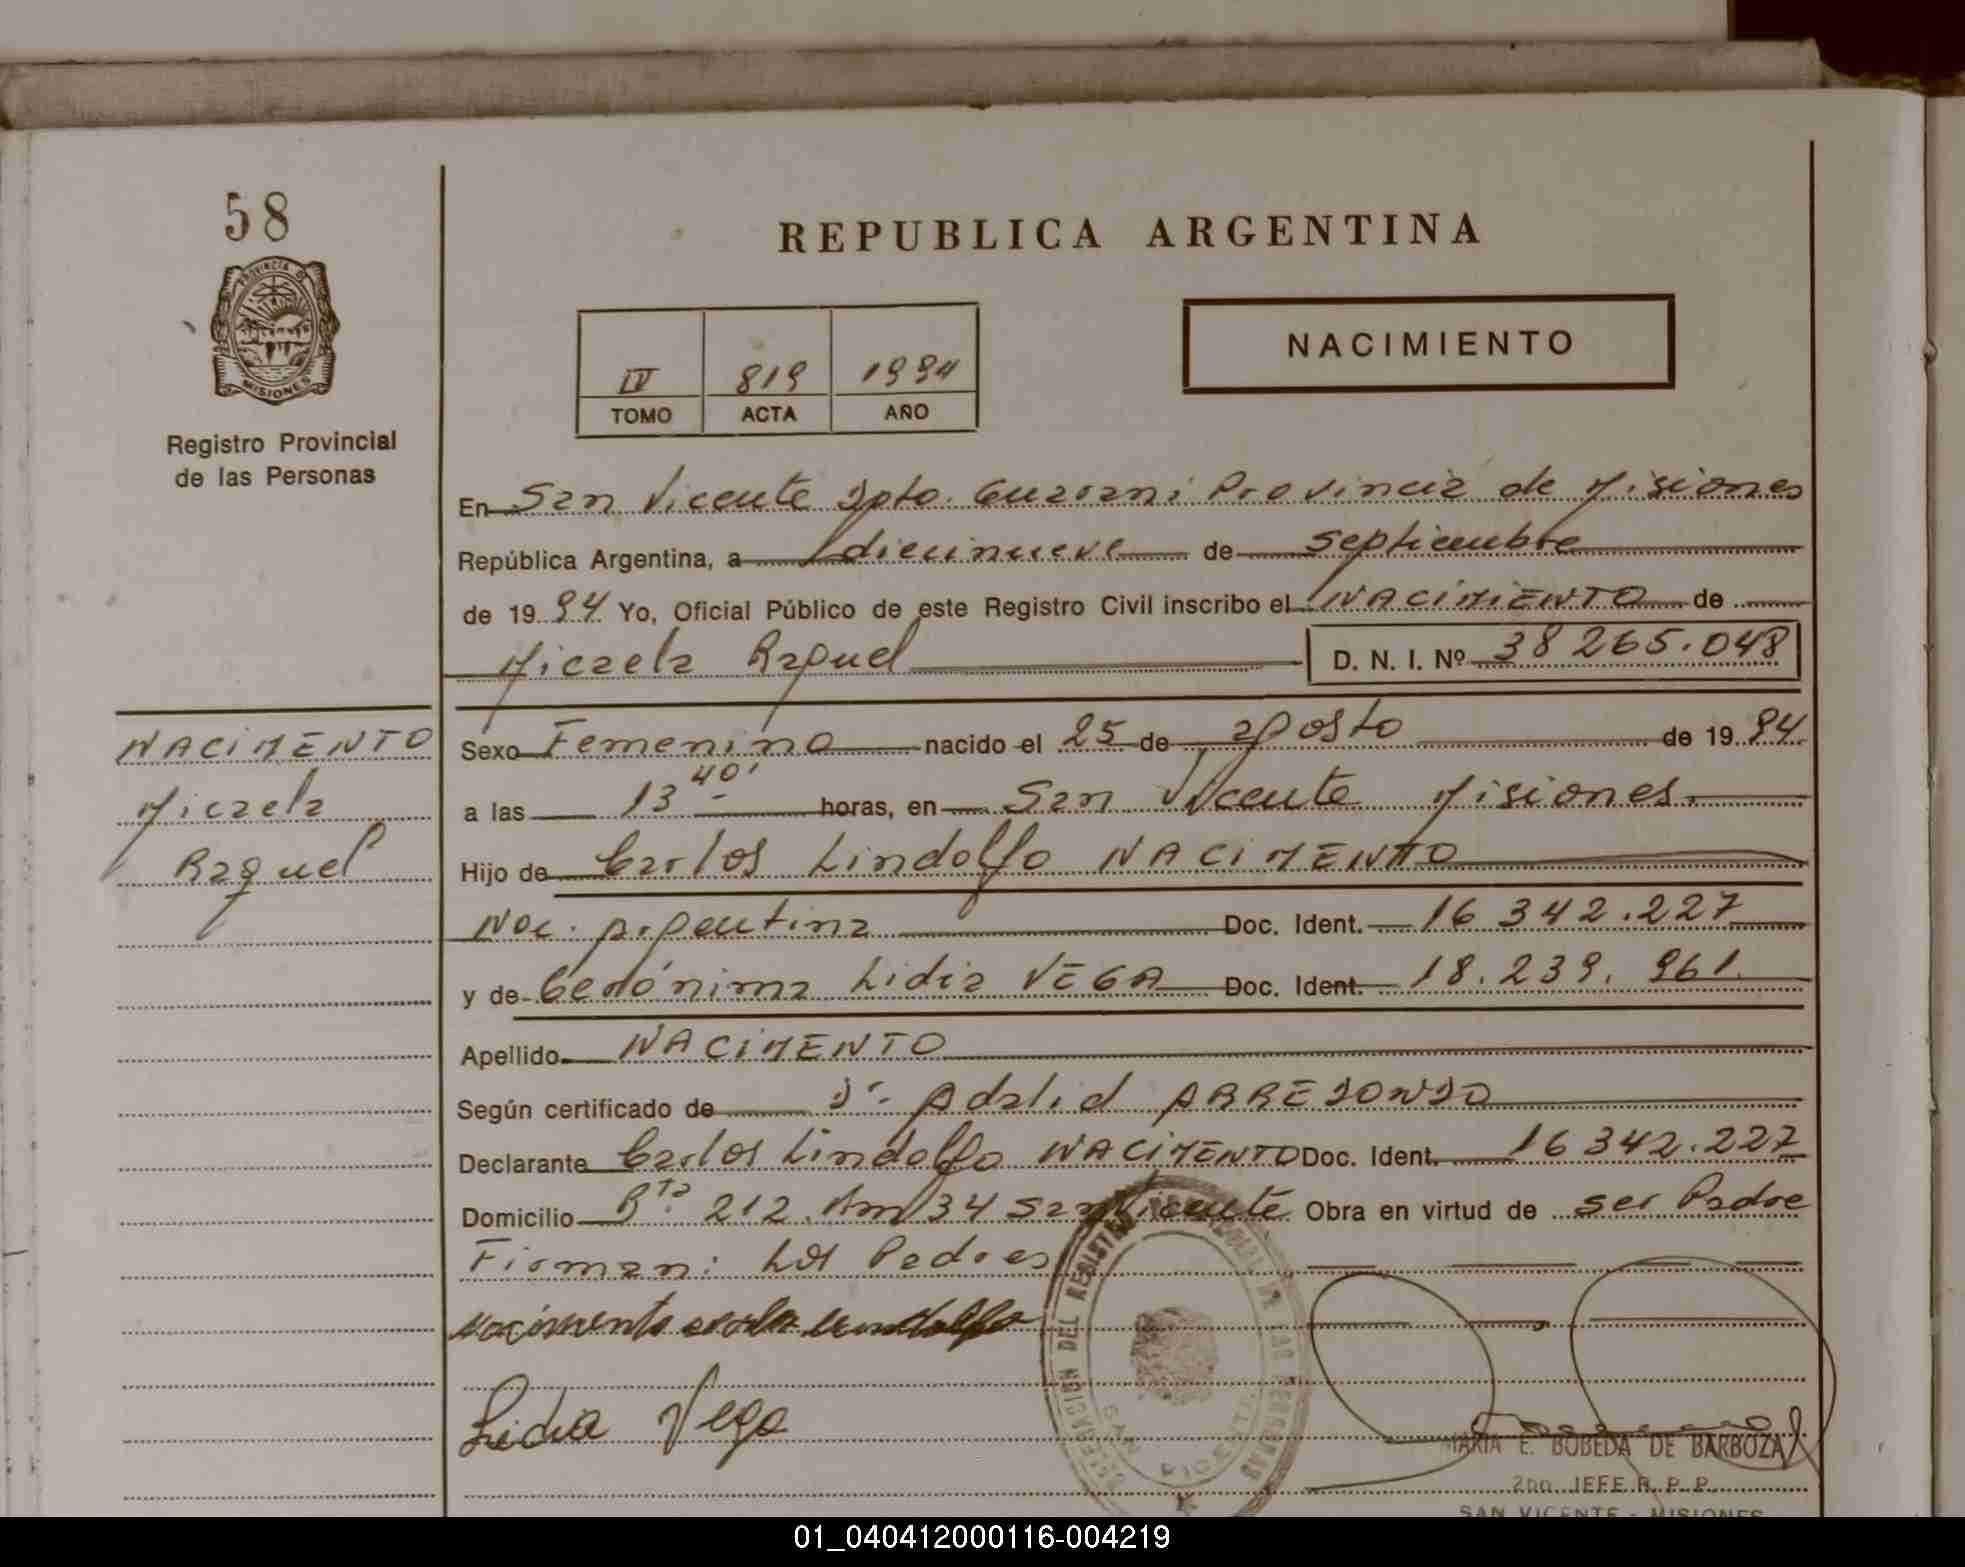 58
PROVINCIA DE
MISIONES
Registro Provincial
de las Personas
REPUBLICA ARGENTINA
IV 819 1994
TOMO ACTA AÑO
NACIMIENTO
En San Vicente Dpto. Guaraní Provincia de Misiones
República Argentina, a diecinueve de septiembre
de 1994 Yo, Oficial Público de este Registro Civil inscribo el NACIMIENTO de
Micaela Raquel D. N. I. Nº 38 265.048
NACIMENTO
Micaela
Raquel
Sexo Femenino nacido el 25 de agosto de 1994
a las 13 40' horas, en San Vicente Misiones.
Hijo de Carlos Lindolfo NACIMENTO
Nac. Argentina Doc. Ident. 16 342.227
y de Gerónima Lidia VEGA Doc. Ident. 18.239.961.
Apellido NACIMENTO
Según certificado de Dr. Adalid ARREDONDO
Declarante Carlos Lindolfo NACIMENTO Doc. Ident. 16 342.227
Domicilio Rta. 212 Km 34 San Vicente Obra en virtud de ser Padre
Firman: Los Padres
Nacimento Lindolfo
Lidia Vega
DEL REGISTRO PROVINCIAL DE LAS PERSONAS
SAN VICENTE
MARIA E. BOBEDA DE BARBOZA
2DO. JEFE R. P. P.
SAN VICENTE - MISIONES
01_040412000116-004219